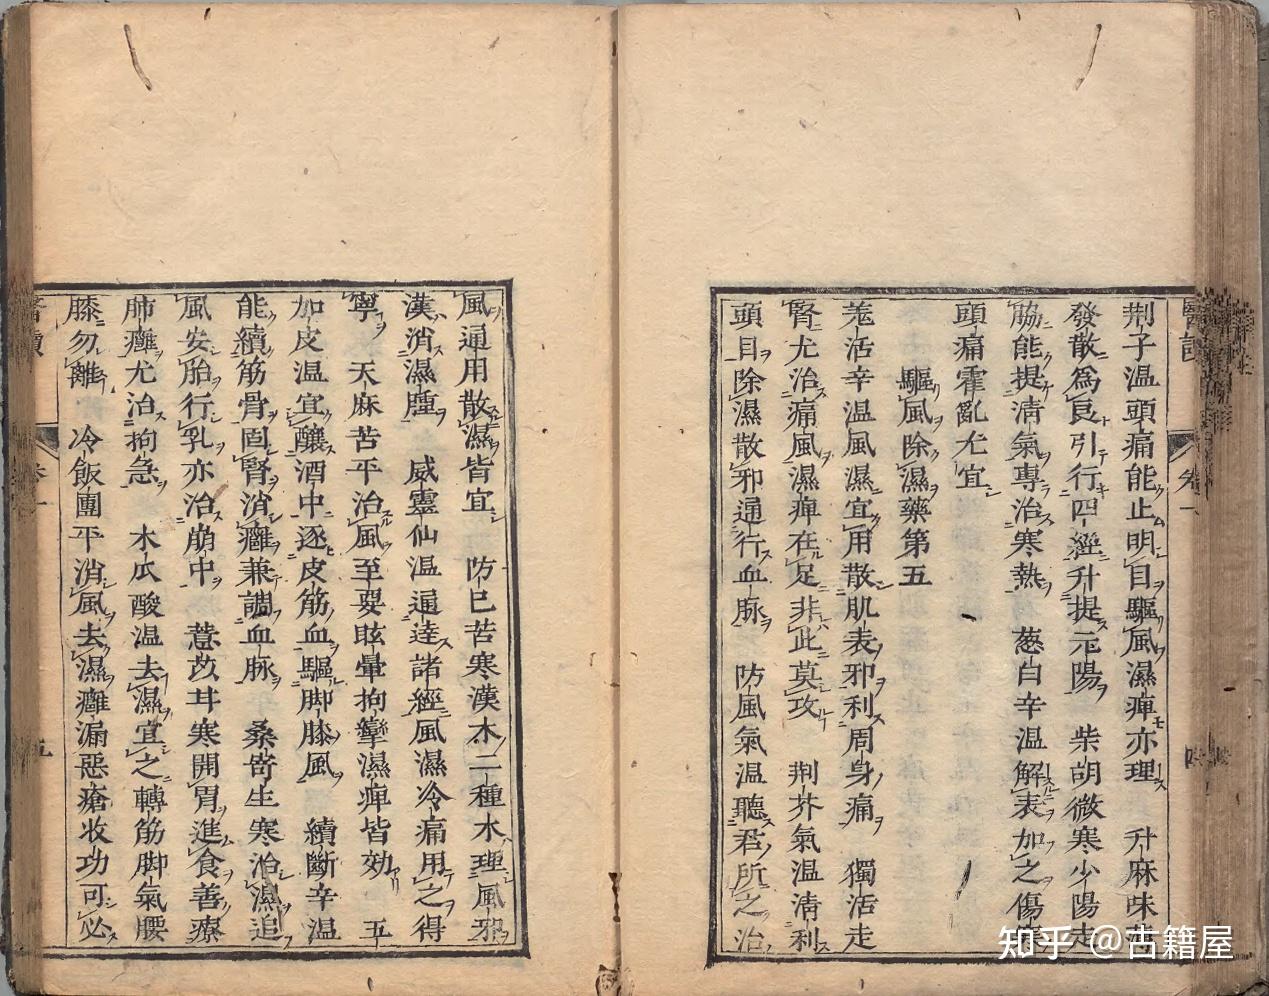 荆子温頭痛能止明目驅風濕痺亦理 升麻味苦
發散為良引行四經升提元陽 柴胡微寒少陽走
脇能提清氣專治寒熱 葱白辛温解表加之傷寒
頭痛霍亂尤宜
驅風除濕藥第五
羗活辛温風濕宜用散肌表邪利周身痛 獨活走
腎尤治痛風濕痺在足非此莫攻 荆芥氣温清利
頭目除濕散邪通行血脉 防風氣温聽君所之治
風通用散濕皆宜 防已苦寒漢木二種木理風邪
漢消濕腫 威靈仙温通達諸經風濕冷痛用之得
寧 天麻苦平治風至要眩暈拘攣濕痺皆効 五
加皮温宜釀酒中逐皮筋血驅脚膝風 續斷辛温
能續筋骨固腎消癰兼調血脉 桑寄生寒治濕追
風安胎行乳亦治崩中 薏苡耳寒開胃進食善療
肺癰尤治拘急 木瓜酸温去濕宜之轉筋脚氣腰
膝勿離 冷飯團平消風去濕癰漏惡瘡收功可必
卷一
五
卷一
知乎 @古籍屋